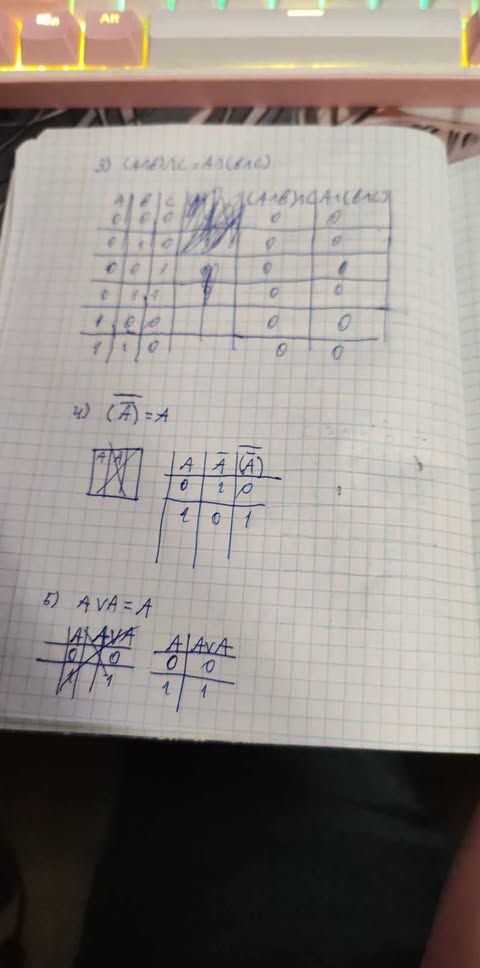 3) (A∧B)∧C = A∧(B∧C)
A B C (A∧B)∧C A∧(B∧C)
0 0 0 0 0
0 1 0 0 0
0 0 1 0 0
0 1 1 0 0
1 0 0 0 0
1 1 0 0 0
4) (A̿) = A
A A̅ (A̿)
0 1 0
1 0 1
5) A∨A = A
A A∨A
0 0
1 1
A A∨A
0 0
1 1